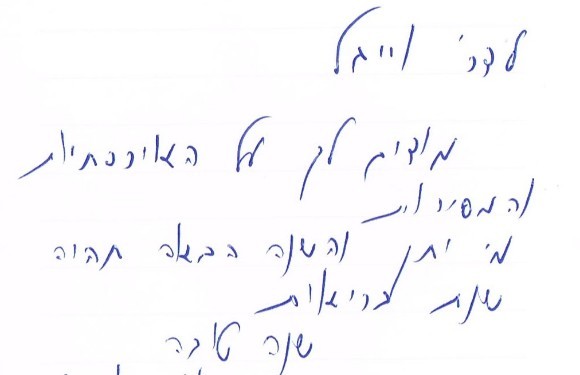 לדר' וייגל
מודים לך על האיכפתיות
והמסירות
מי יתן והשנה הבאה תהיה
שנת בריאות
שנה טובה